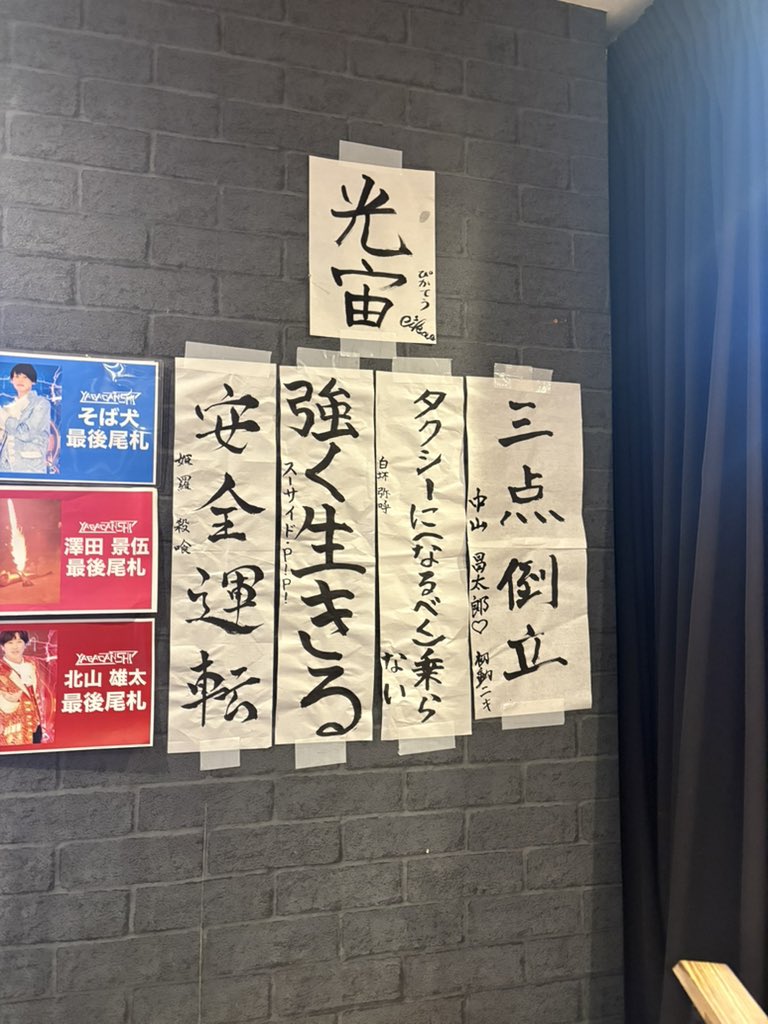 光宙
ぴかてう
三点倒立
中山 昌太郎♡
タクシーに(なるべく)乗らない
強く生きる
スーサイド・P!P!
安全運転
姫羅 殺喰
YABAGANSHI
そば犬
最後尾札
YABAGANSHI
澤田 景伍
最後尾札
YABAGANSHI
北山 雄太
最後尾札